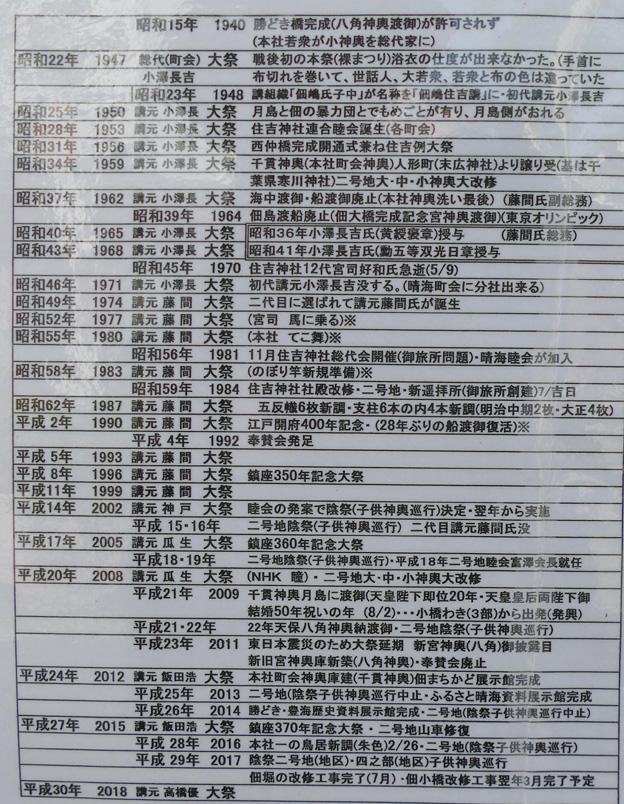 昭和15年 1940 勝どき橋完成(八角神輿渡御)が許可されず
(本社若衆が小神輿を総代家に)
昭和22年 1947 総代(町会) 大祭 戦後初の本祭(裸まつり)浴衣の仕度が出来なかった。(手首に
小澤長吉 布切れを巻いて、世話人、大若衆、若衆と布の色は違っていた
昭和23年 1948 講組織「佃嶋氏子中」が名称を「佃嶋住吉講」に・初代講元小澤長吉
昭和25年 1950 講元 小澤長 大祭 月島と佃の暴力団とでもめごとが有り、月島側がおれる
昭和28年 1953 講元 小澤長 大祭 住吉神社連合睦会誕生(各町会)
昭和31年 1956 講元 小澤長 大祭 西仲橋完成開通式兼ね住吉例大祭
昭和34年 1959 講元 小澤長 大祭 千貫神輿(本社町会神輿)人形町(末広神社)より譲り受(基は千
葉県寒川神社)二号地大・中・小神輿大改修
昭和37年 1962 講元 小澤長 大祭 海中渡御・船渡御廃止(本社神輿洗い最後) (藤間氏副総務)
昭和39年 1964 佃島渡船廃止(佃大橋完成記念宮神輿渡御)(東京オリンピック)
昭和40年 1965 講元 小澤長 大祭 昭和36年小澤長吉氏(黄綬褒章)授与 (藤間氏総務)
昭和43年 1968 講元 小澤長 大祭 昭和41年小澤長吉氏(勳五等双光日章授与
昭和45年 1970 住吉神社12代宮司好和氏急逝(5/9)
昭和46年 1971 講元 小澤長 大祭 初代講元小澤長吉没する。(晴海町会に分社出来る)
昭和49年 1974 講元 藤 間 大祭 二代目に選ばれて講元藤間氏が誕生
昭和52年 1977 講元 藤 間 大祭 (宮司 馬に乗る)※
昭和55年 1980 講元 藤 間 大祭 (本社 てこ舞)※
昭和56年 1981 11月住吉神社総代会開催(御旅所問題)・晴海睦会が加入
昭和58年 1983 講元 藤 間 大祭 (のぼり竿新規準備)※
昭和59年 1984 住吉神社社殿改修・二号地・新遥拝所(御旅所創建)7/吉日
昭和62年 1987 講元 藤 間 大祭 五反幟6枚新調・支柱6本の内4本新調(明治中期2枚・大正4枚)
平成 2年 1990 講元 藤 間 大祭 江戸開府400年記念・(28年ぶりの船渡御復活)※
平成 4年 1992 奉賛会発足
平成 5年 1993 講元 藤 間 大祭
平成 8年 1996 講元 藤 間 大祭 鎮座350年記念大祭
平成11年 1999 講元 藤 間 大祭
平成14年 2002 講元 神 戸 大祭 睦会の発案で陰祭(子供神輿巡行)決定・翌年から実施
平成 15・16年 二号地陰祭(子供神輿巡行) 二代目講元藤間氏没
平成17年 2005 講元 瓜 生 大祭 鎮座360年記念大祭
平成18・19年 二号地陰祭(子供神輿巡行)・平成18年二号地睦会富澤会長就任
平成20年 2008 講元 瓜 生 大祭 (NHK 瞳)・二号地大・中・小神輿大改修
平成21年 2009 千貫神輿月島に渡御(天皇陛下即位20年・天皇皇后両陛下御
結婚50年祝いの年 (8/2)・・・小橋わき(3部)から出発(発輿)
平成21・22年 22年天保八角神輿納渡御・二号地陰祭(子供神輿巡行)
平成23年 2011 東日本震災のため大祭延期 新宮神輿(八角)御披露目
新旧宮神輿庫新築(八角神輿)・奉賛会廃止
平成24年 2012 講元 飯田浩 大祭 本社町会神輿庫建(千貫神輿)佃まちかど展示館完成
平成25年 2013 二号地(陰祭子供神輿巡行中止・ふるさと晴海資料展示館完成
平成26年 2014 勝どき・豊海歴史資料展示館完成・二号地(陰祭子供神輿巡行中止)
平成27年 2015 講元 飯田浩 大祭 鎮座370年記念大祭・二号地山車修復
平成 28年 2016 本社一の鳥居新調(朱色)2/26・二号地(陰祭子供神輿巡行)
平成 29年 2017 陰祭二号地(地区)・四之部(地区)子供神輿巡行
佃堀の改修工事完了(7月)・佃小橋改修工事翌年3月完了予定
平成30年 2018 講元 高橋優 大祭